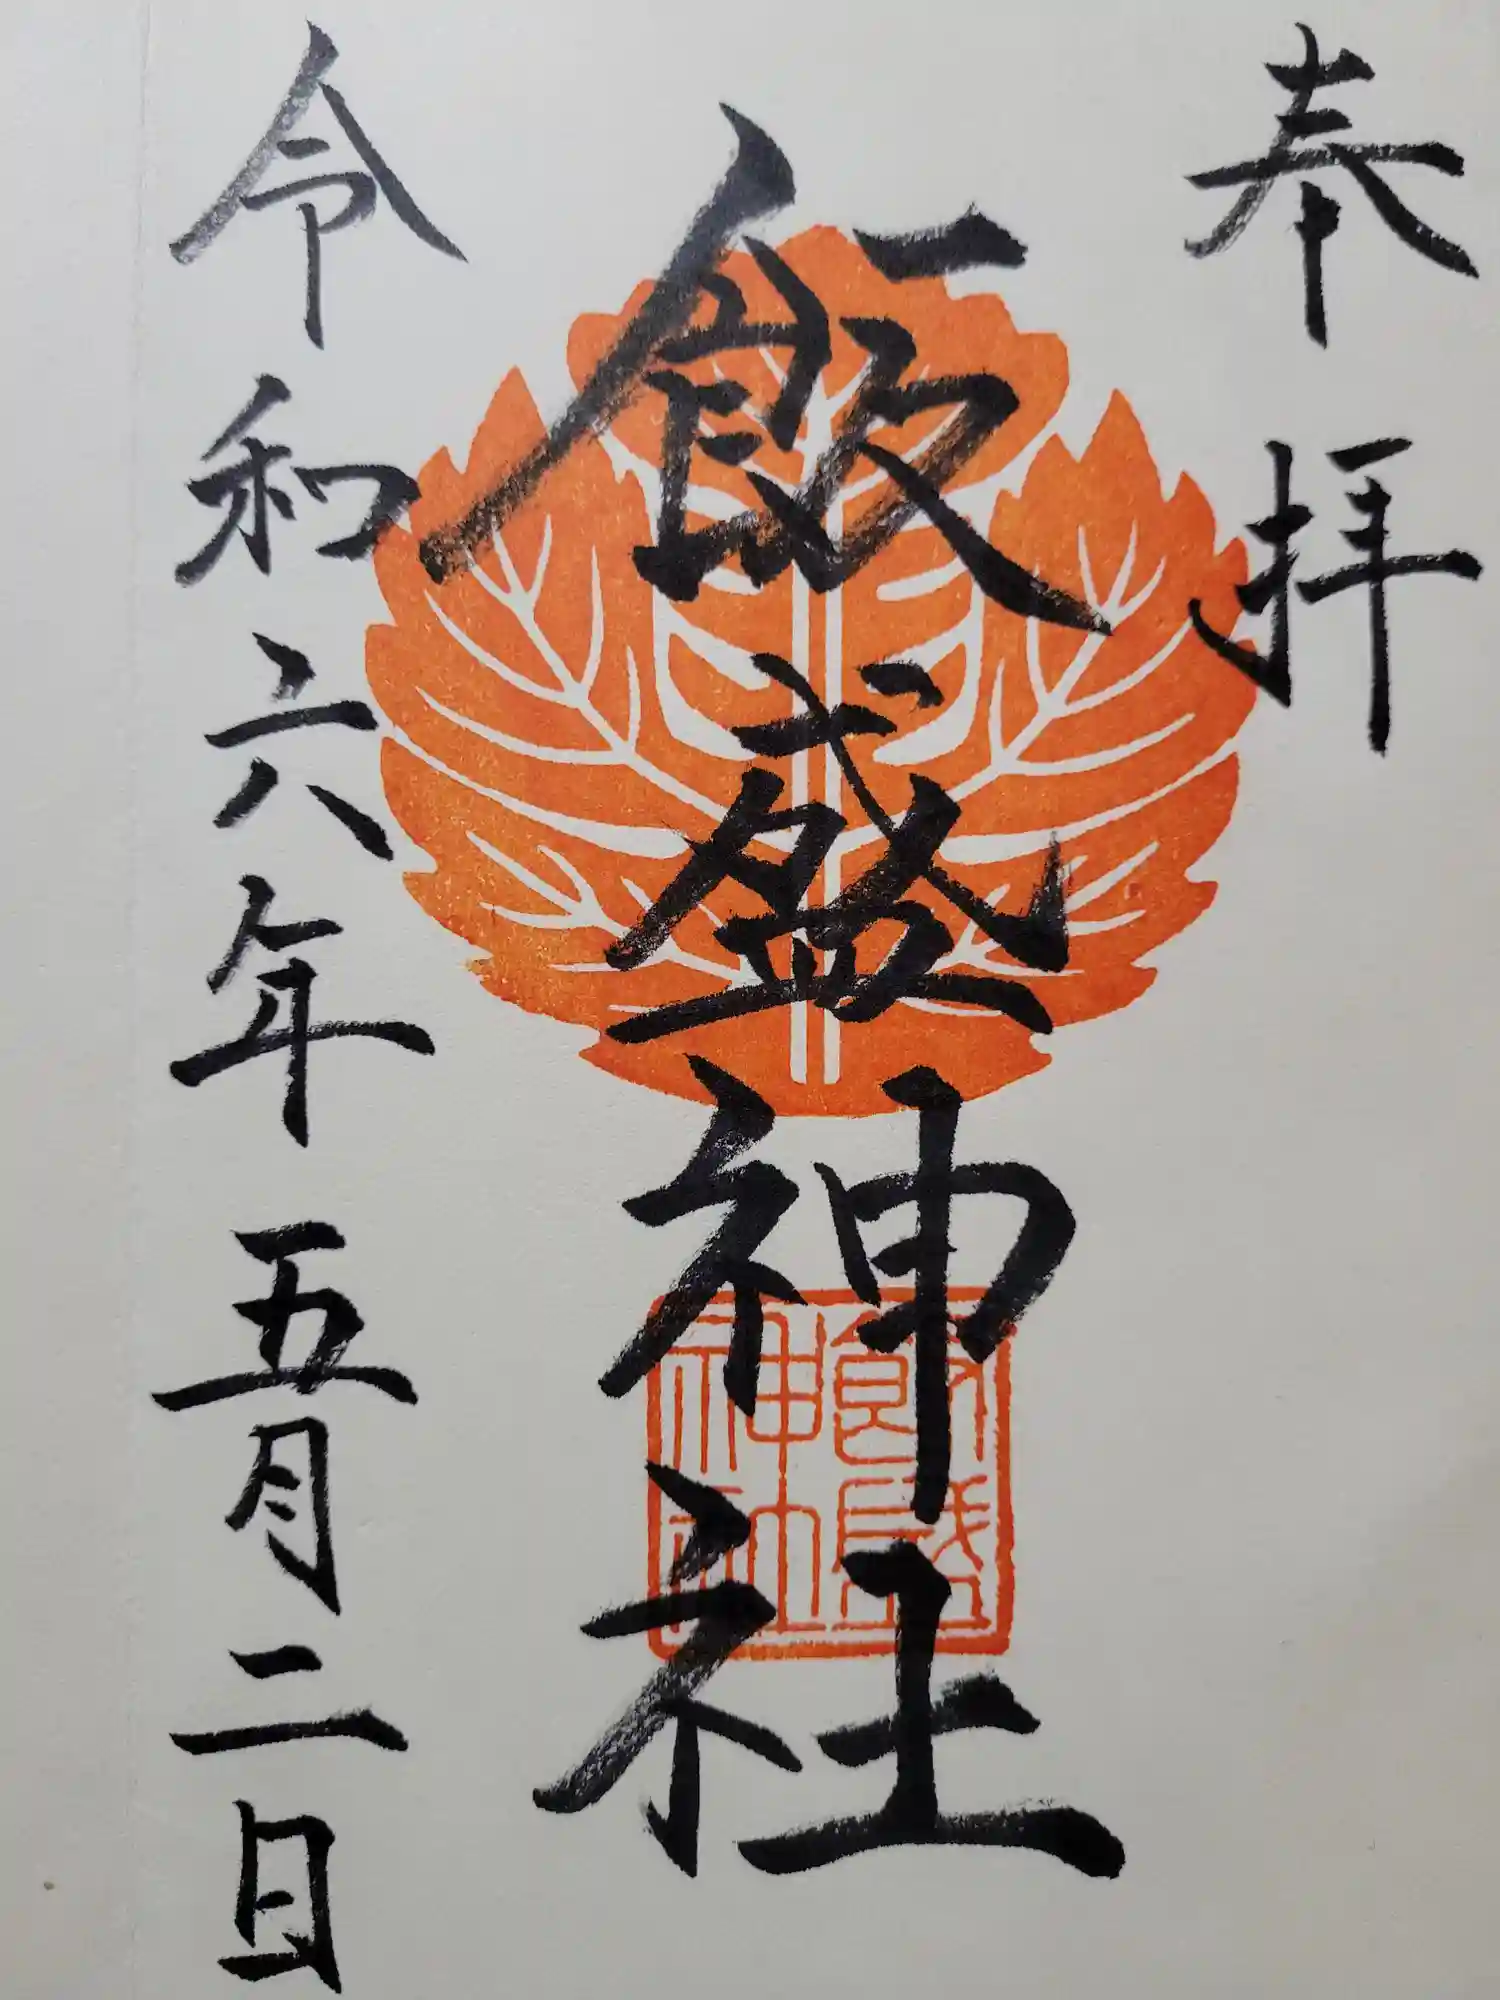 奉拝
飯盛神社
飯盛
神社
令和六年五月二日